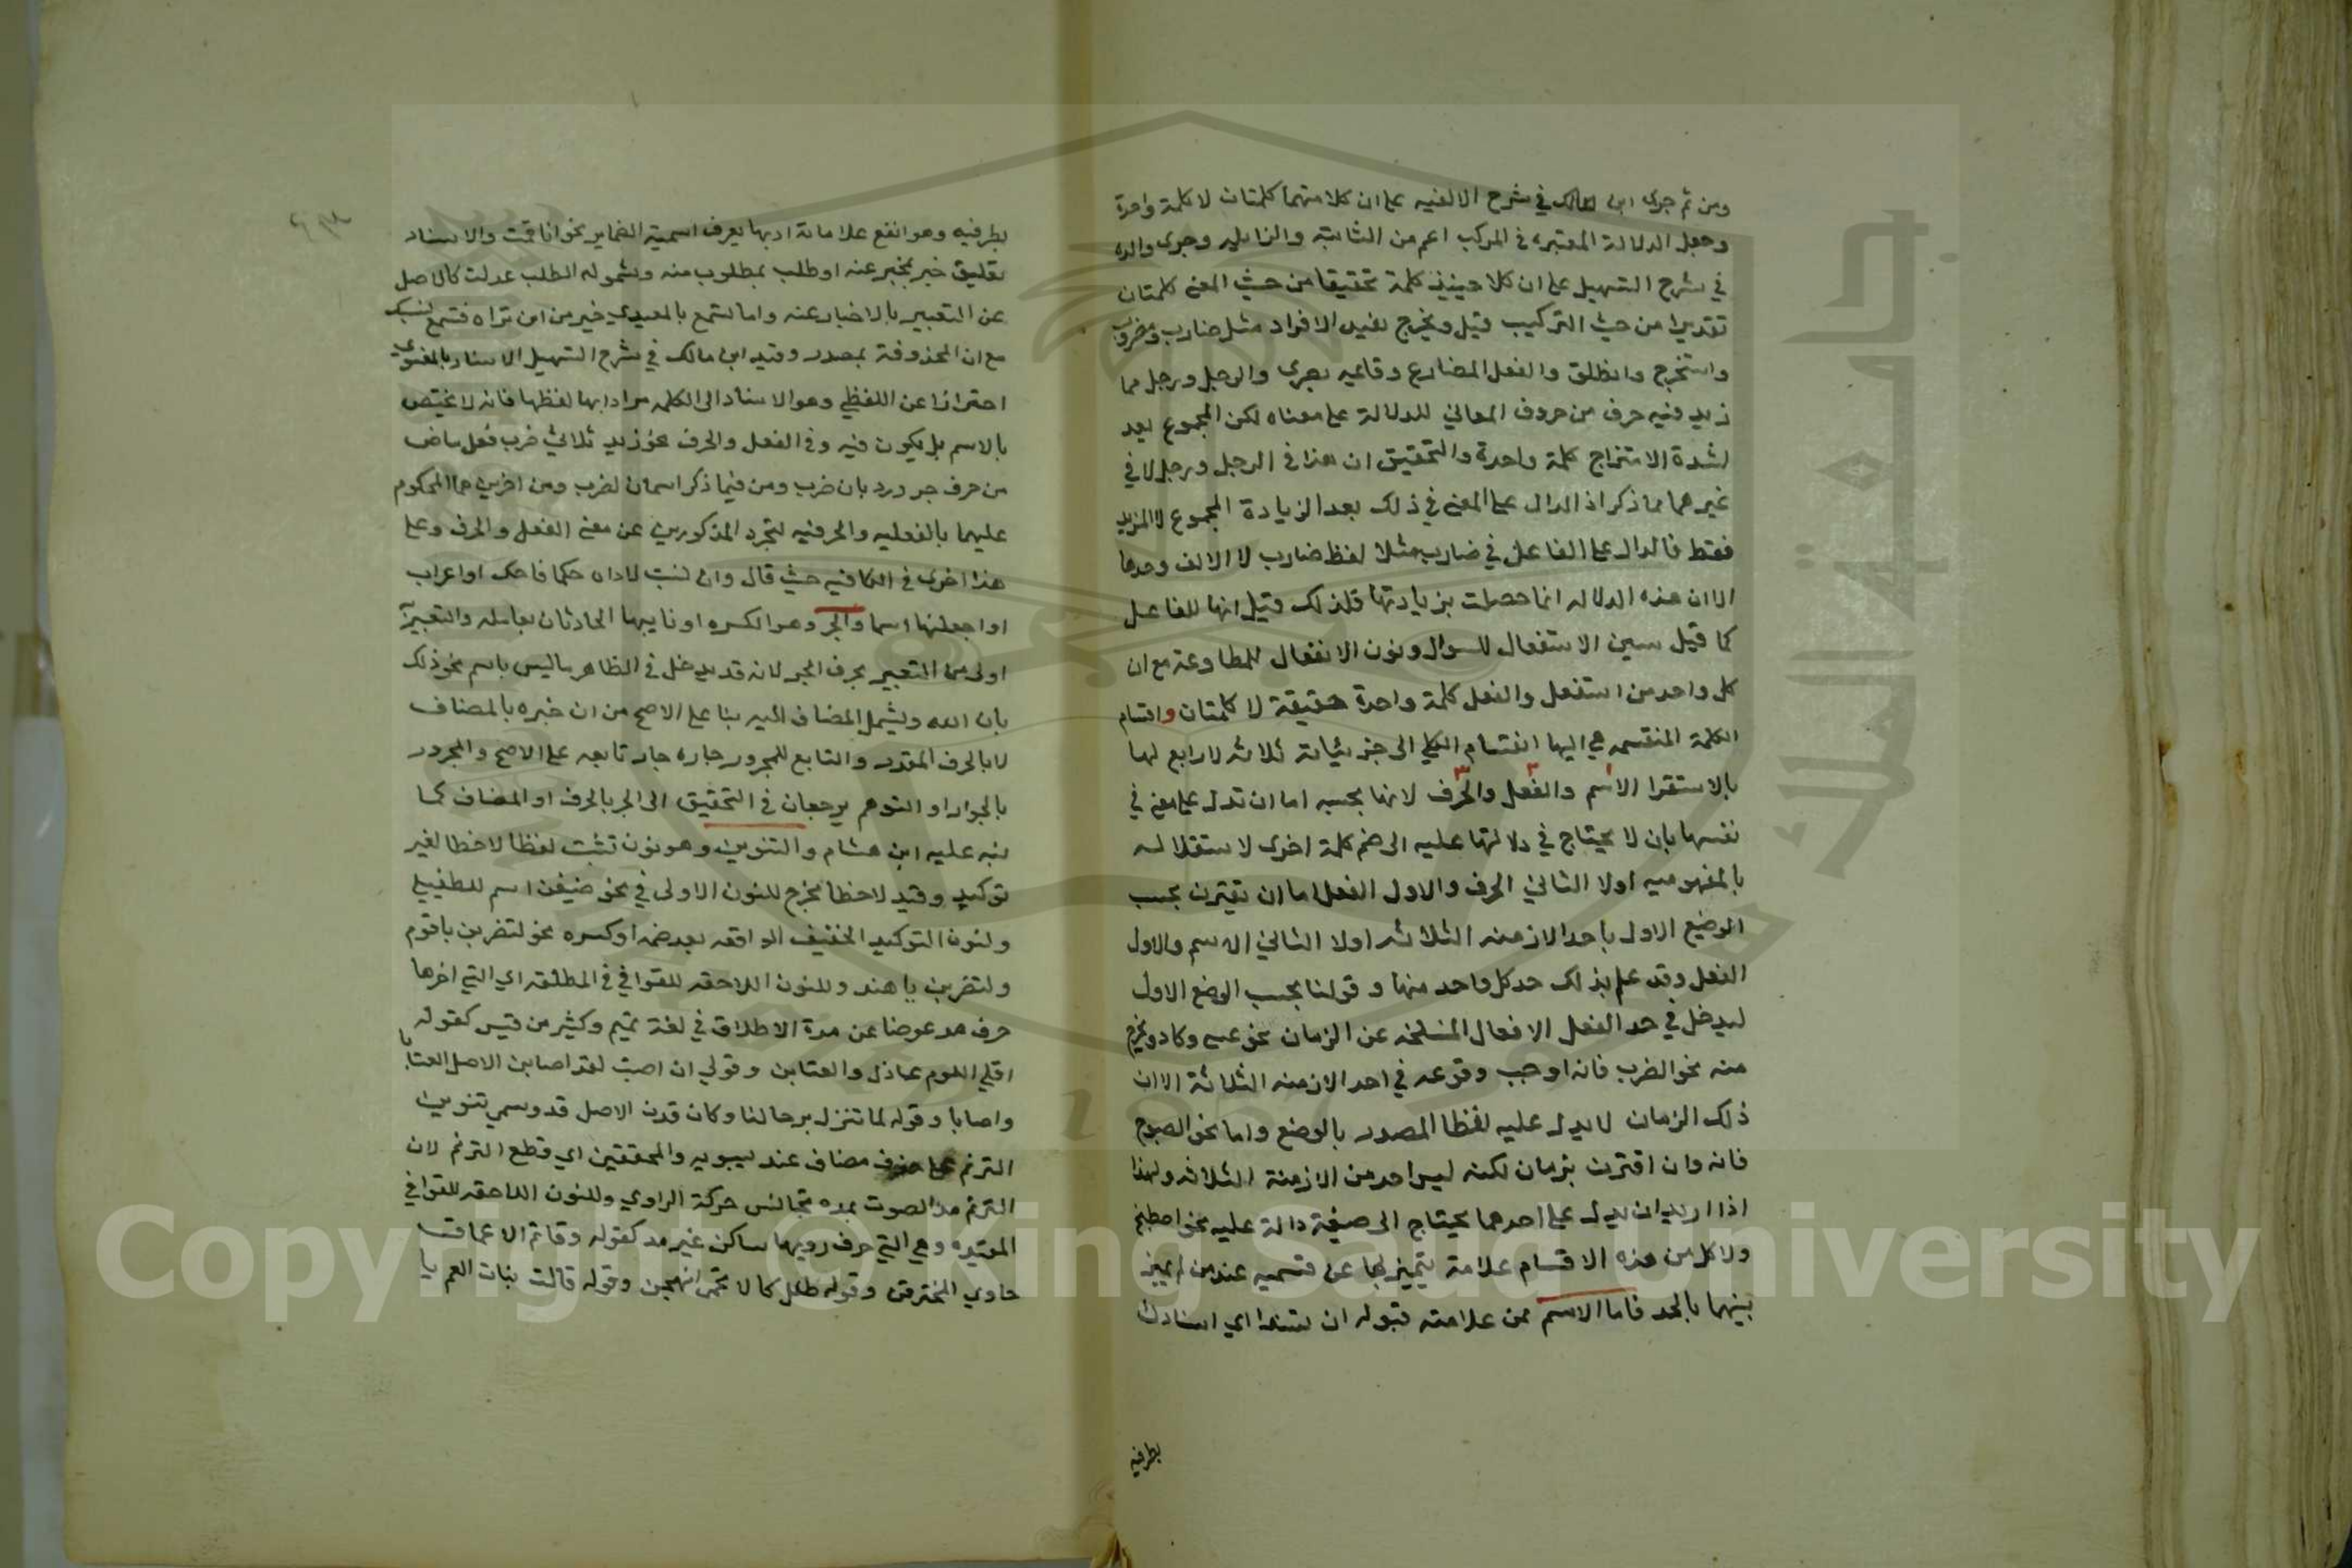 ومن ثم جرى ابن مالك في شرح الالفيه على ان كلا منهما كلمتان لا كلمة واحدة
وجعل الدلالة المعتبرة في المركب اعم من الثابتة والزايله وجرى والده
في شرح التسهيل على ان كلا حينيذ كلمة تحقيقا من حيث المعنى كلمتان
تقديرا من حيث التركيب قيل ويخرج بقيد الافراد مثل ضارب ومضروب
واستخرج وانطلق والفعل المضارع وقايمه بصرى والرجل ورجل مما
زيد فيه حرف من حروف المعاني للدلالة على معناه لكن المجموع يعد
لشدة الامتزاج كلمة واحدة والتحقيق ان هذا في الرجل ورجل لا في
غيرهما مما ذكر اذ الدال على المعنى في ذلك بعد الزيادة المجموع لا المزيد
فقط فالدال على الفاعل في ضارب مثلا لفظ ضارب لا الالف وحدها
الا ان هذه الدلاله انما حصلت بزيادتها فلذلك قيل انها للفاعل
كما قيل سين الاستفعال للسوال ونون الانفعال للمطاوعة مع ان
كل واحد من استفعل وانفعل كلمة واحدة حقيقة لا كلمتان واقسام
الكلمة المنقسمه هي اليها انقسام الكلي الى جزئياته ثلاثه لا رابع لها
بالاستقرا الاسم والفعل والحرف لانها بحسبه اما ان تدل على معنى في
نفسها بان لا يحتاج في دلالتها عليه الى ضم كلمة اخرى لاستقلاله
بالمفهوميه اولا الثاني الحرف والاول الفعل اما ان يقترن بحسب
الوضع الاول باحد الازمنه الثلاثه اولا الثاني الاسم والاول
الفعل وقد علم بذلك حد كل واحد منها وقولنا بحسب الوضع الاول
ليدخل في حد الفعل الافعال المنسلخه عن الزمان نحو عسى وكاد ويخرج
منه نحو الضرب فانه اوجب وقوعه في احد الازمنه الثلاثة الا ان
ذلك الزمان لا يدل عليه لفظ المصدر بالوضع واما نحو الصبوح
فانه وان اقترن بزمان لكنه ليس احد من الازمنة الثلاثه ولهذا
اذا اريد ان يدل على احدهما يحتاج الى صيغة دالة عليه نحو اصطبح
ولكل من هذه الاقسام علامة يتميز بها عن قسميه عند من لم يميز
بينهما بالحد فاما الاسم فمن علامته قبوله ان يسند اي اسناد
بطرفيه
بطرفيه وهو انفع علاماته اذ بها يعرف اسمية الضماير نحو انا قمت والاسناد
تعليق خبر بمخبر عنه او طلب بمطلوب منه ولشموله الطلب عدلت كالاصل
عن التعبير بالاخبار عنه واما تسمع بالمعيدي خير من ان تراه فتسمع
مع ان المحذوفة بمصدر وقيد ابن مالك في شرح التسهيل الاسناد بالمعنوي
احترازا عن اللفظي وهو الاسناد الى الكلمه مرادا بها لفظها فانه لا يختص
بالاسم بل يكون فيه وفي الفعل والحرف نحو زيد ثلاثي ضرب فعل ماض
من حرف جر ورد بان ضرب ومن فيما ذكر اسمان لضرب ومن اخرين هما المحكوم
عليهما بالفعليه والحرفيه لتجرد المذكورين عن معنى الفعل والحرف وعلى
هذا اجرى في الكافيه حيث قال وان نسبت لاداه حكما فاحك او اعراب
او اجعلنها اسما والجر وهو الكسره او نايبها الحادثان بعامله والتعبير به
اولى من التعبير بحرف الجر لانه قد يدخل في الظاهر ما ليس باسم نحو ذلك
بان الله ويشمل المضاف اليه بنا على الاصح من ان جره بالمضاف
لا بالحرف المقدر والتابع للمجرور جاره جار تابعه على الاصح والمجرور
بالجوار او التوهم يرجعان في التحقيق الى الجر بالحرف او المضاف كما
نبه عليه ابن هشام والتنوين وهو نون تثبت لفظا لا خطا لغير
توكيد وقيد لا خطا مخرج للنون الاولى في نحو ضيفن اسم للطفيلي
ولنون التوكيد الخفيف الواقعه بعد ضمه او كسره نحو لتضربن ياقوم
ولتضربن يا هند وللنون اللاحقه للقوافي المطلقه اي التي اخرها
حرف مد عوضا عن مدة الاطلاق في لغة تميم وكثير من قيس كقوله
اقلي اللوم عاذل والعتابن وقولي ان اصبت لقد اصابن الاصل العتابا
واصابا وقوله لما تنزل برحالنا وكان قدن الاصل قد ويسمى تنوين
الترنم على حذف مضاف عند سيبويه والمحققين اي قطع الترنم لان
الترنم مد الصوت بمده تجانس حركة الراوي وللنون اللاحقه للقوافي
المقيده وهي التي حرف رويها ساكن غير مد كقوله وقاتم الاعماق
خاوي المخترقن وقوله طلل كالاتحمي انهجن وقوله قالت بنات العم يا
Copyright © King Saud University
جامعة الملك سعود
1957